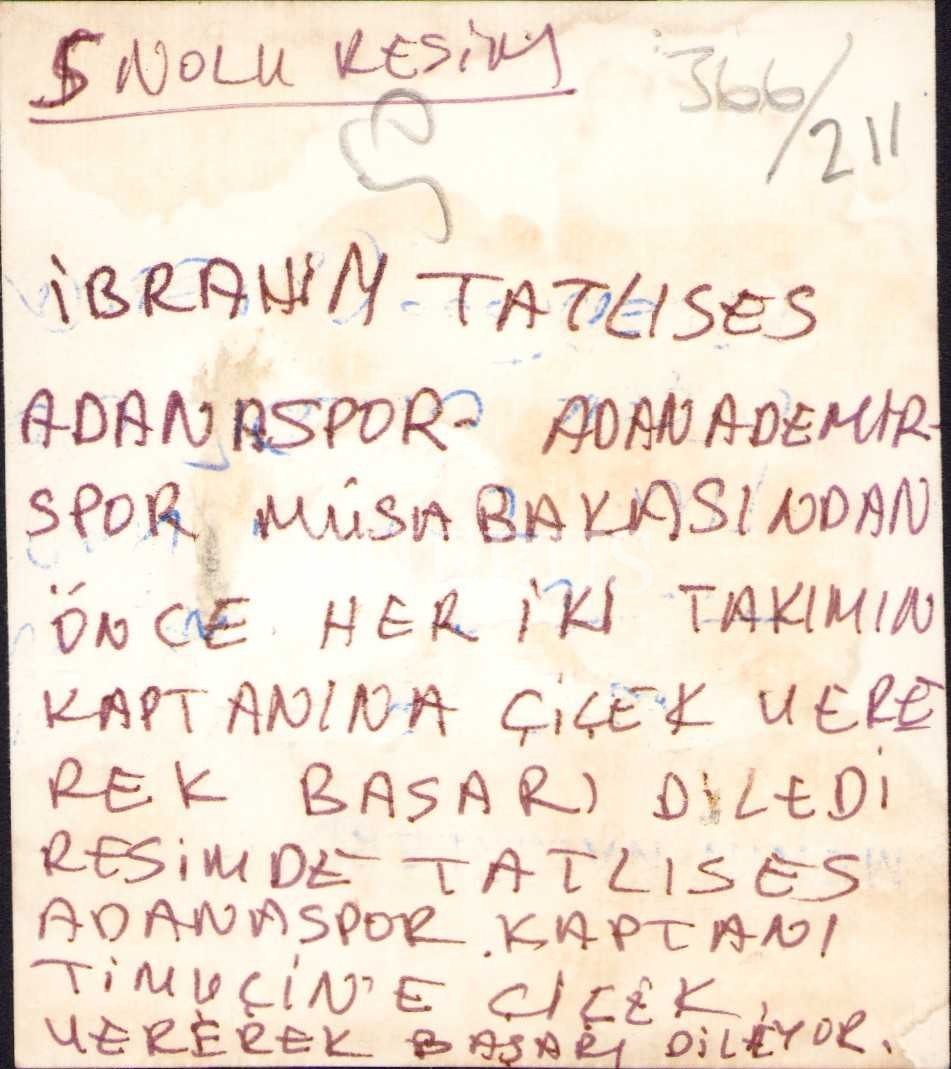 5 NOLU RESİM
366/211
İBRAHİM TATLISES
ADANASPOR- ADANADEMİR-
SPOR MÜSABAKASINDAN
ÖNCE HER İKİ TAKIMIN
KAPTANINA ÇİÇEK VERE
REK BAŞARI DİLEDİ
RESİMDE TATLISES
ADANASPOR KAPTANI
TİMUÇİN'E ÇİÇEK
VEREREK BAŞARI DİLİYOR.